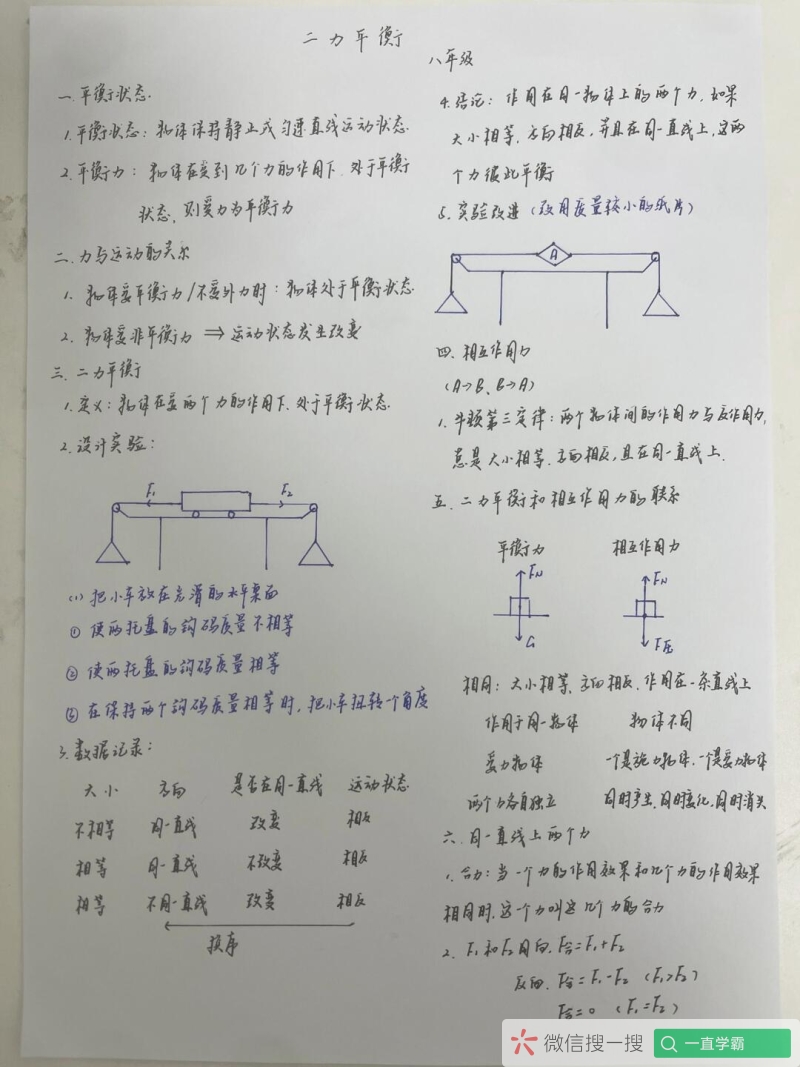 二力平衡
八年级
一.平衡状态.
1.平衡状态:物体保持静止或匀速直线运动状态.
2.平衡力:物体在受到几个力的作用下.处于平衡
状态,则受力为平衡力
二.力与运动的关系
1.物体受平衡力/不受外力时:物体处于平衡状态.
2.物体受非平衡力 ⇒ 运动状态发生改变
三.二力平衡
1.定义:物体在受两个力的作用下.处于平衡状态.
2.设计实验:
F₁ F₂
(1)把小车放在光滑的水平桌面
①使两托盘的钩码质量不相等
②使两托盘的钩码质量相等
③在保持两个钩码质量相等时,把小车扭转一个角度
3.数据记录:
大小 方向 是否在同一直线 运动状态
不相等 同一直线 改变 相反
相等 同一直线 不改变 相反
相等 不同一直线 改变 相反
换序
4.结论:作用在同一物体上的两个力,如果
大小相等.方向相反,并且在同一直线上,这两
个力彼此平衡
5.实验改进(改用质量较小的纸片)
A
四.相互作用力
(A→B、B→A)
1.牛顿第三定律:两个物体间的作用力与反作用力,
总是大小相等.方向相反,且在同一直线上.
五.二力平衡和相互作用力的联系
平衡力 相互作用力
FN FN
G F压
相同:大小相等,方向相反,作用在一条直线上
作用于同一物体 物体不同
受力物体 一个是施力物体.一个是受力物体
两个力各自独立 同时产生,同时变化,同时消失
六.同一直线上两个力
1.合力:当一个力的作用效果和几个力的作用效果
相同时.这个力叫这几个力的合力
2.F₁和F₂同向.F合=F₁+F₂
反向.F合=F₁-F₂ (F₁>F₂)
F合=0 (F₁=F₂)
微信搜一搜 一直学霸